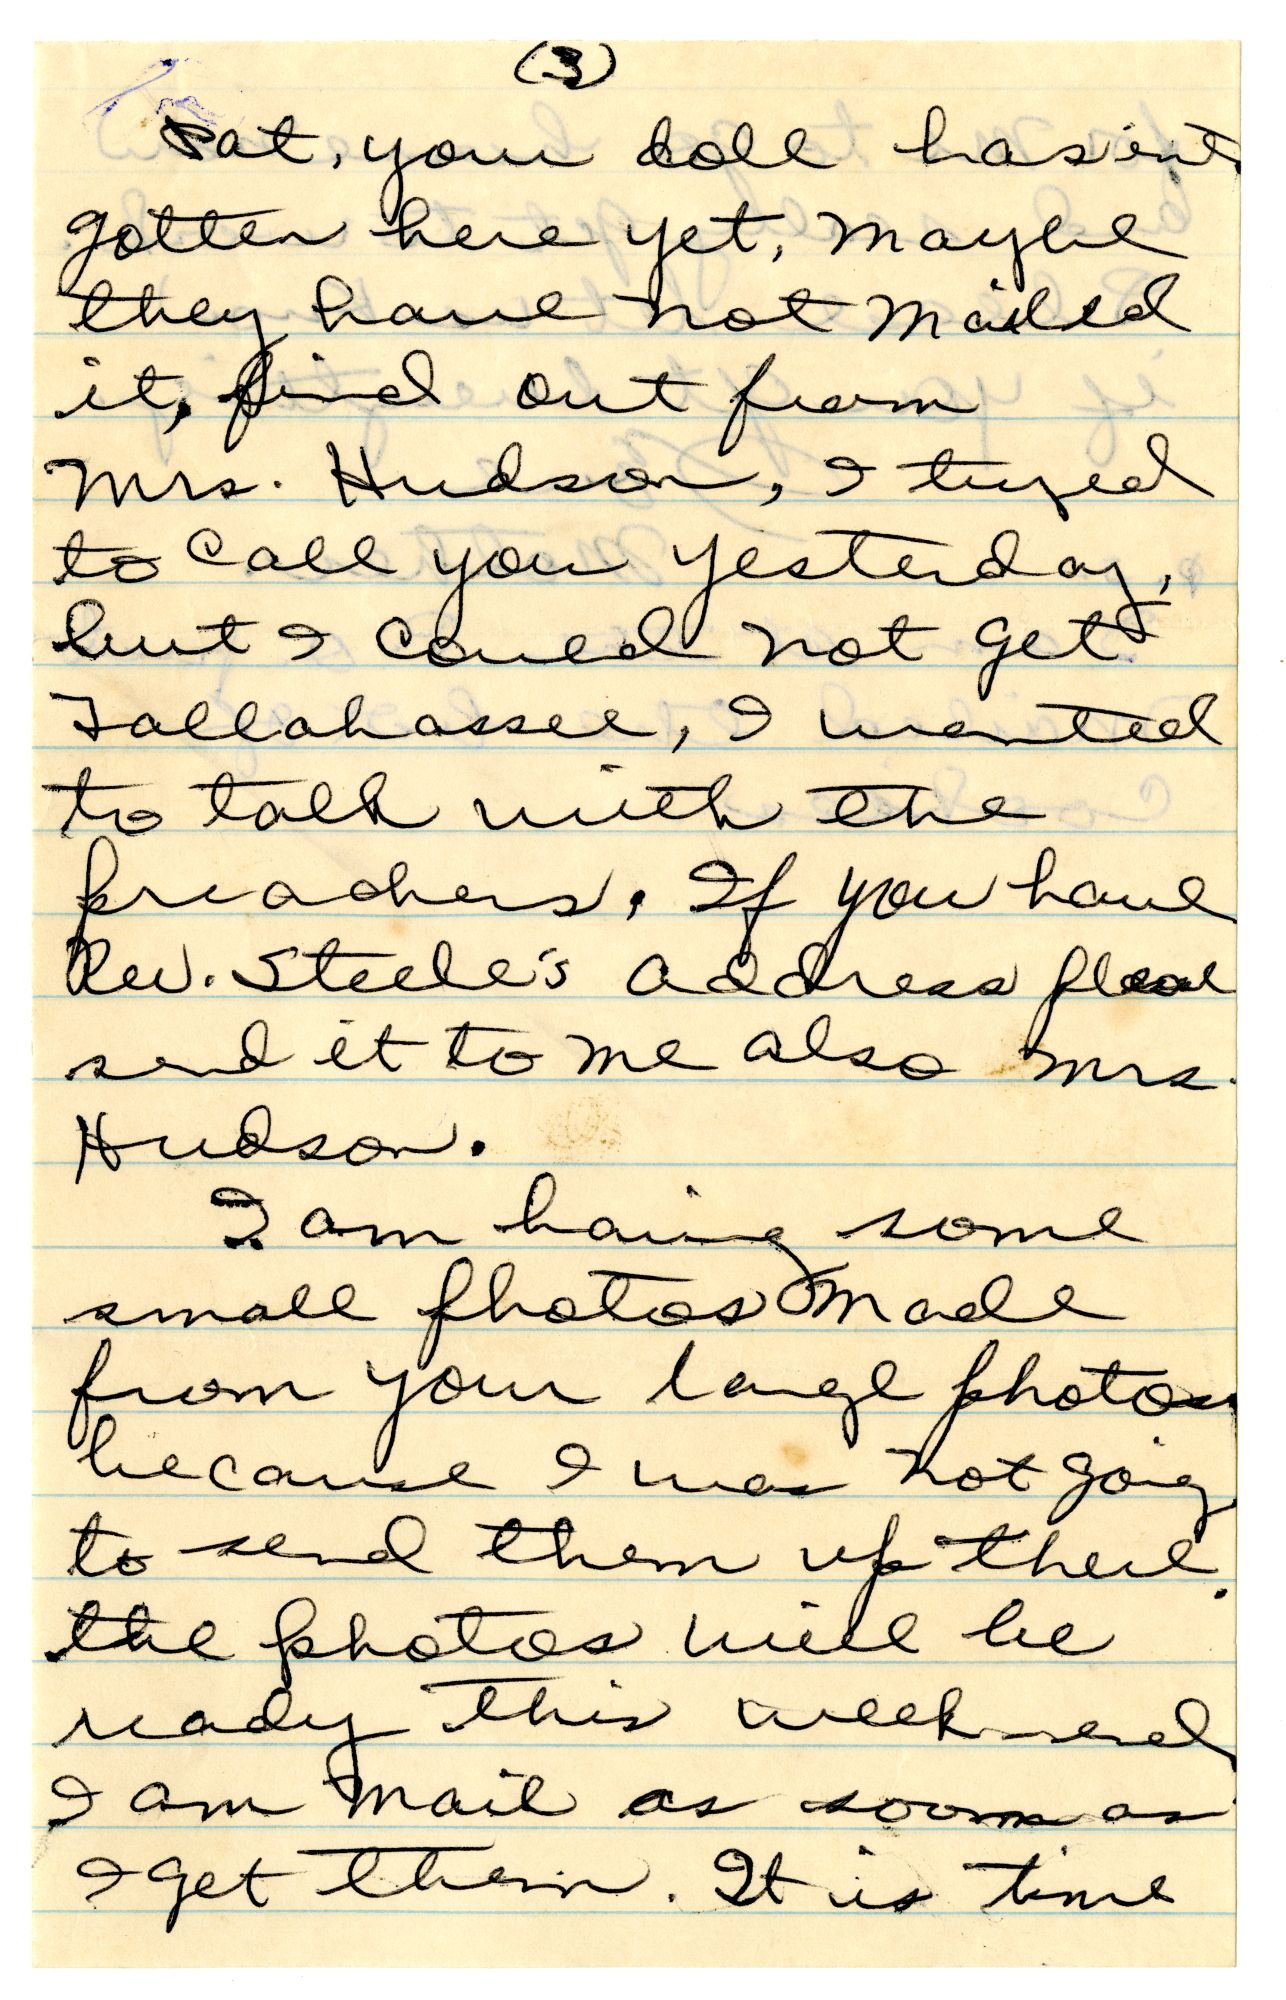 (3)
Pat, your doll has'ent
gotten here yet, maybe
they have not mailed
it, find out from
Mrs. Hudson, I tryed
to call you yesterday,
but I could not get
Tallahassee, I wanted
to talk with the
preachers. If you have
Rev. Steele's address please
send it to me also Mrs.
Hudson.
I am having some
small photos made
from your large photos
because I was not going
to send them up there.
the photos will be
ready this weekend,
I am mail as soon as
I get them. It is time